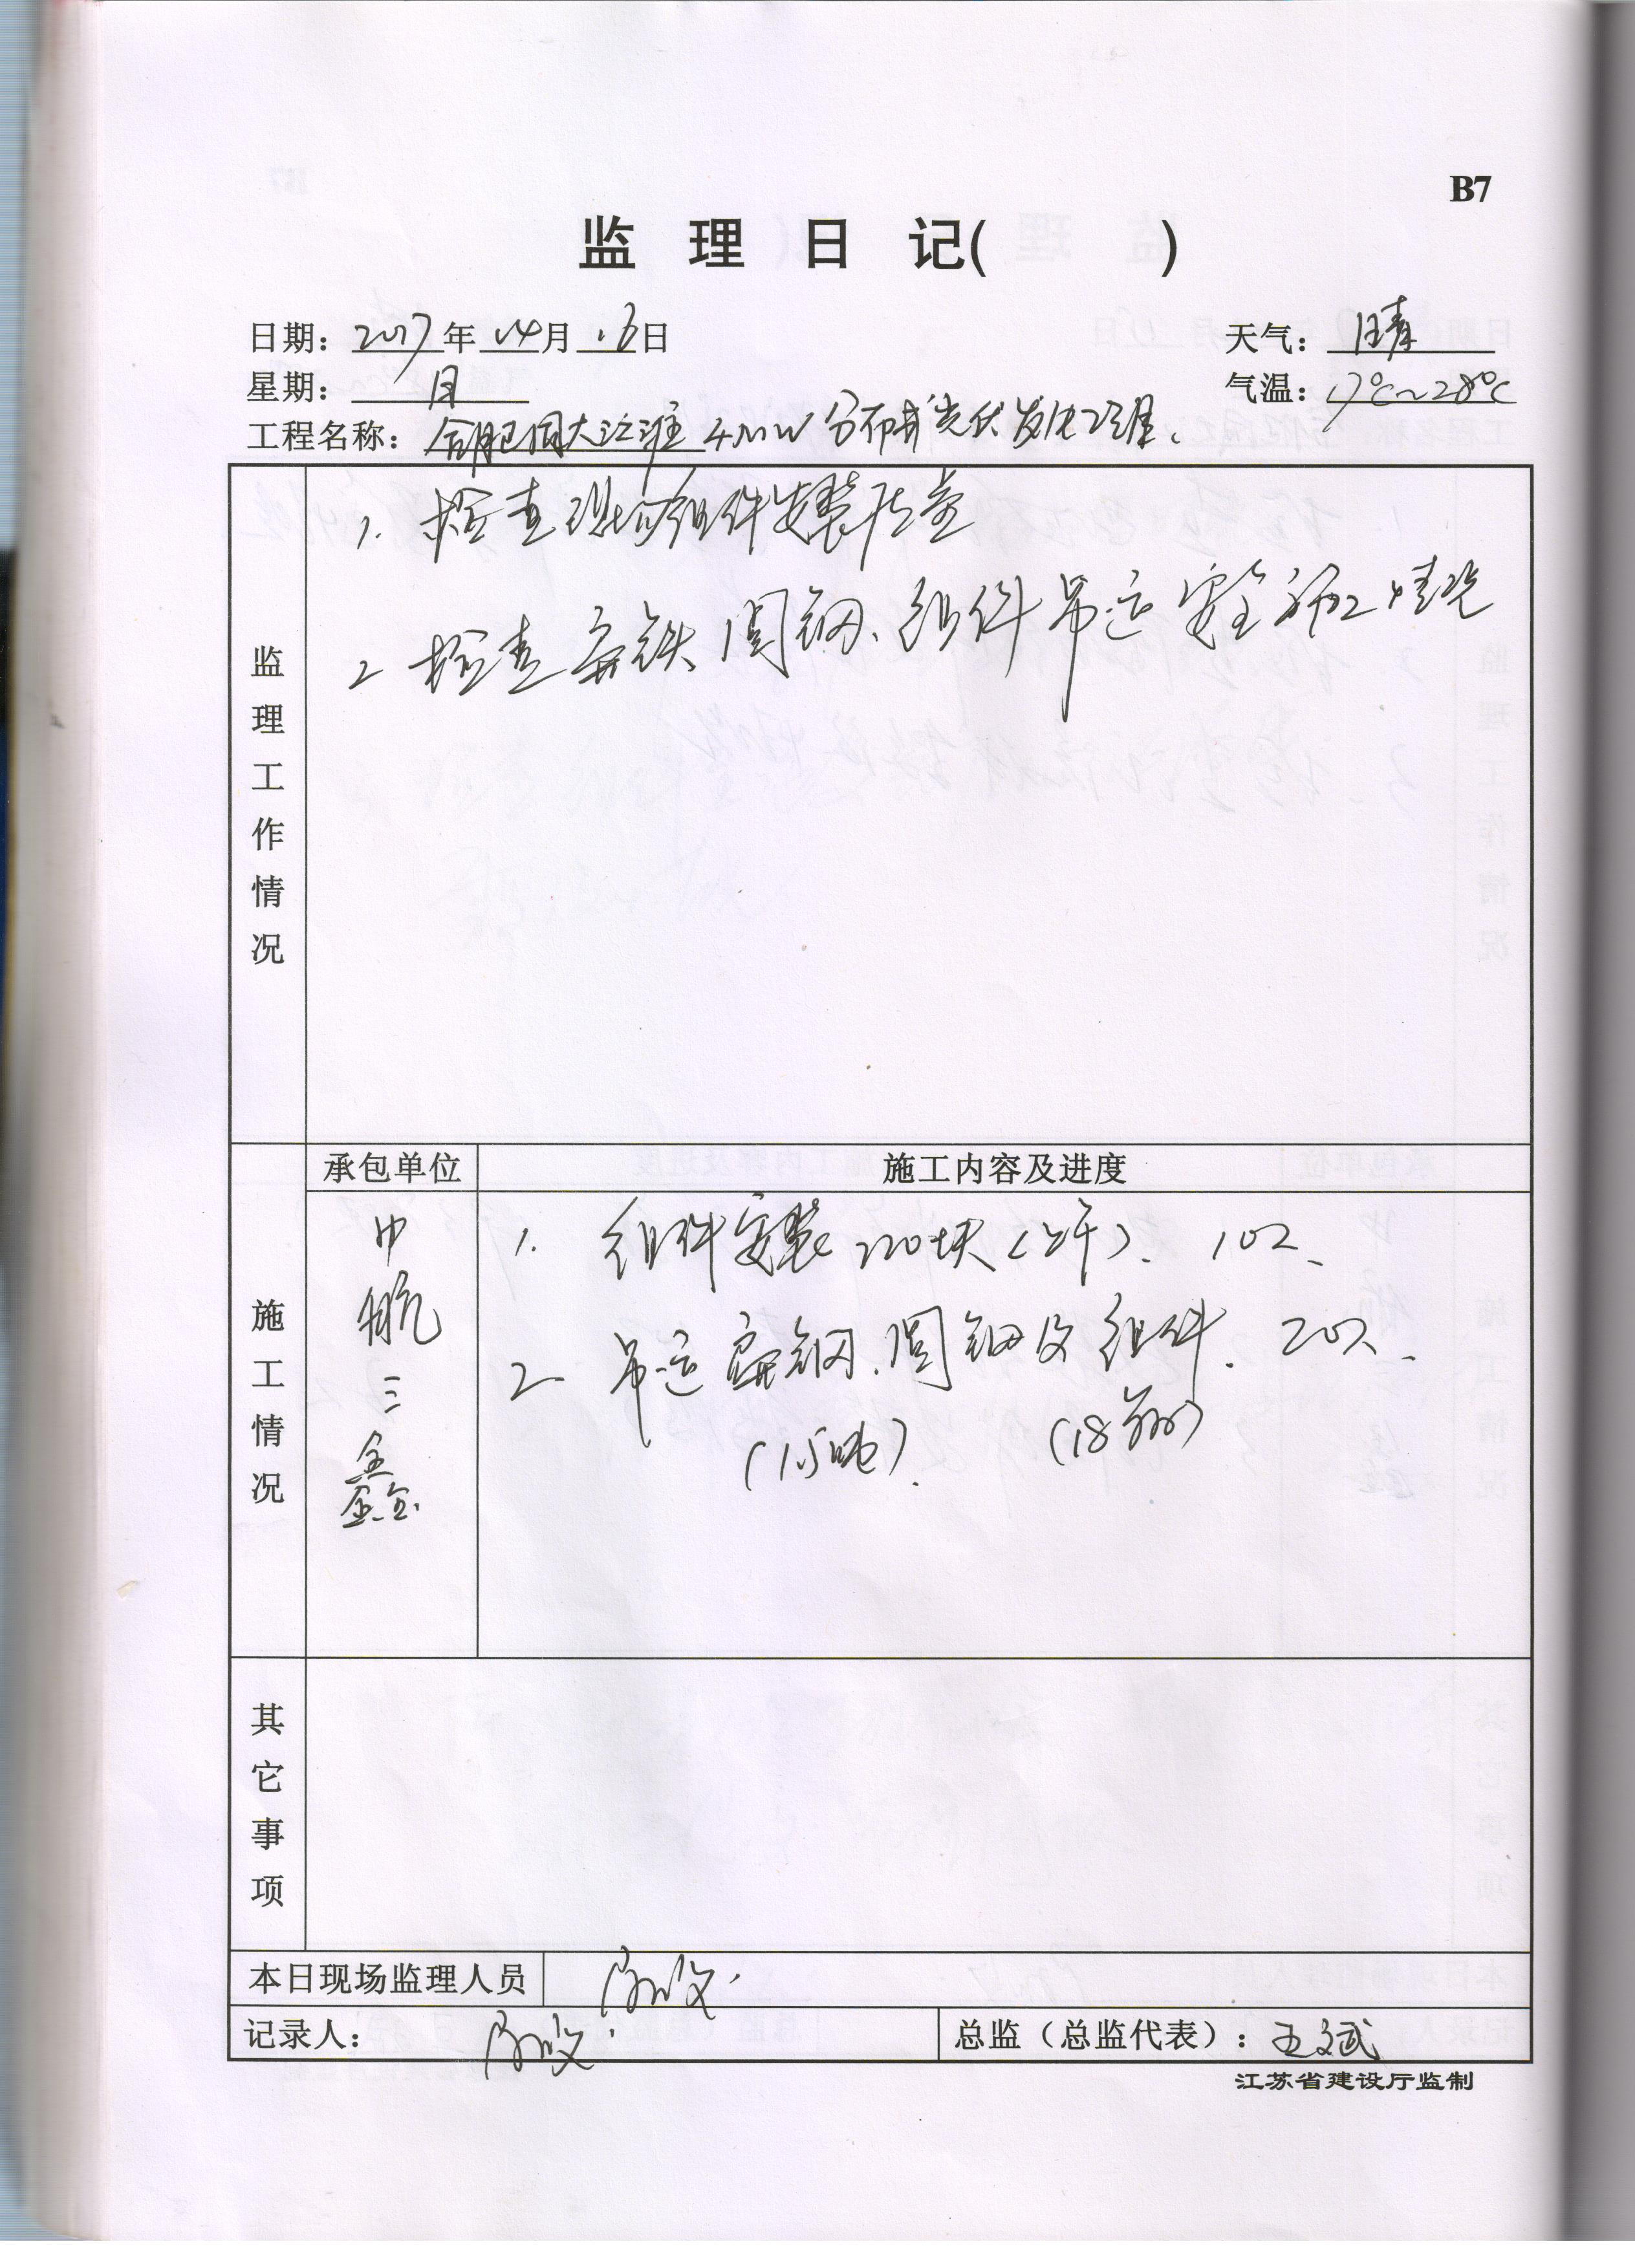 B7
监 理 日 记( )
日期：2017年04月16日 天气：晴
星期：日 气温：17℃~28℃
工程名称：合肥恒大江淮4MW分布式光伏发电工程.
监理工作情况
1. 检查现场组件安装质量
2 检查扁铁、圆钢、组件吊运安全施工情况
承包单位 施工内容及进度
施工情况
中航三鑫
1. 组件安装220块(上午)、10人、
2 吊运扁钢、圆钢及组件. 20人、
(15吨). (18)
其它事项
本日现场监理人员
记录人： 总监（总监代表）：王斌
江苏省建设厅监制